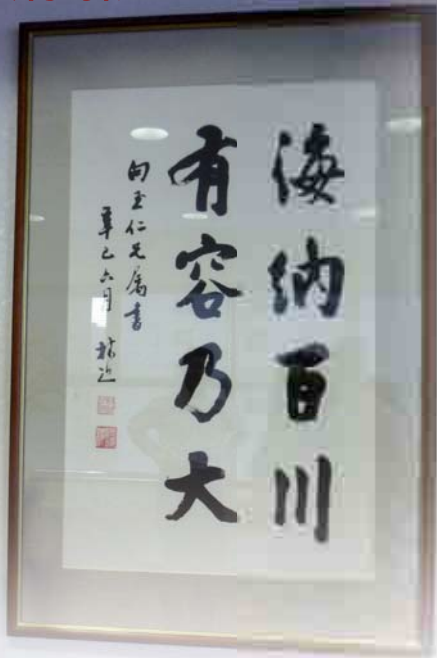 海纳百川
有容乃大
向玉仁兄属书
辛巳六月